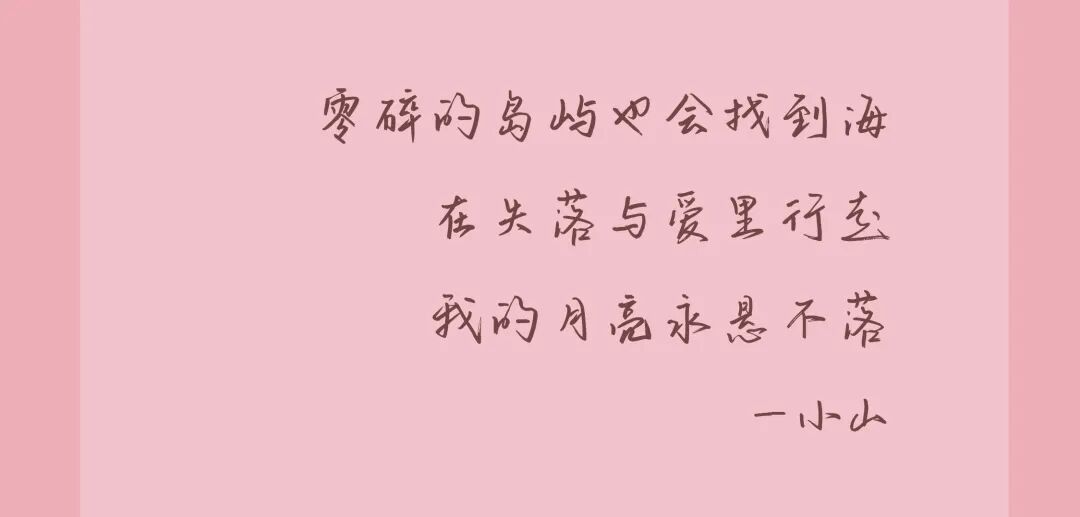 零碎的岛屿也会找到海
在失落与爱里行走
我的月亮永悬不落
—小山